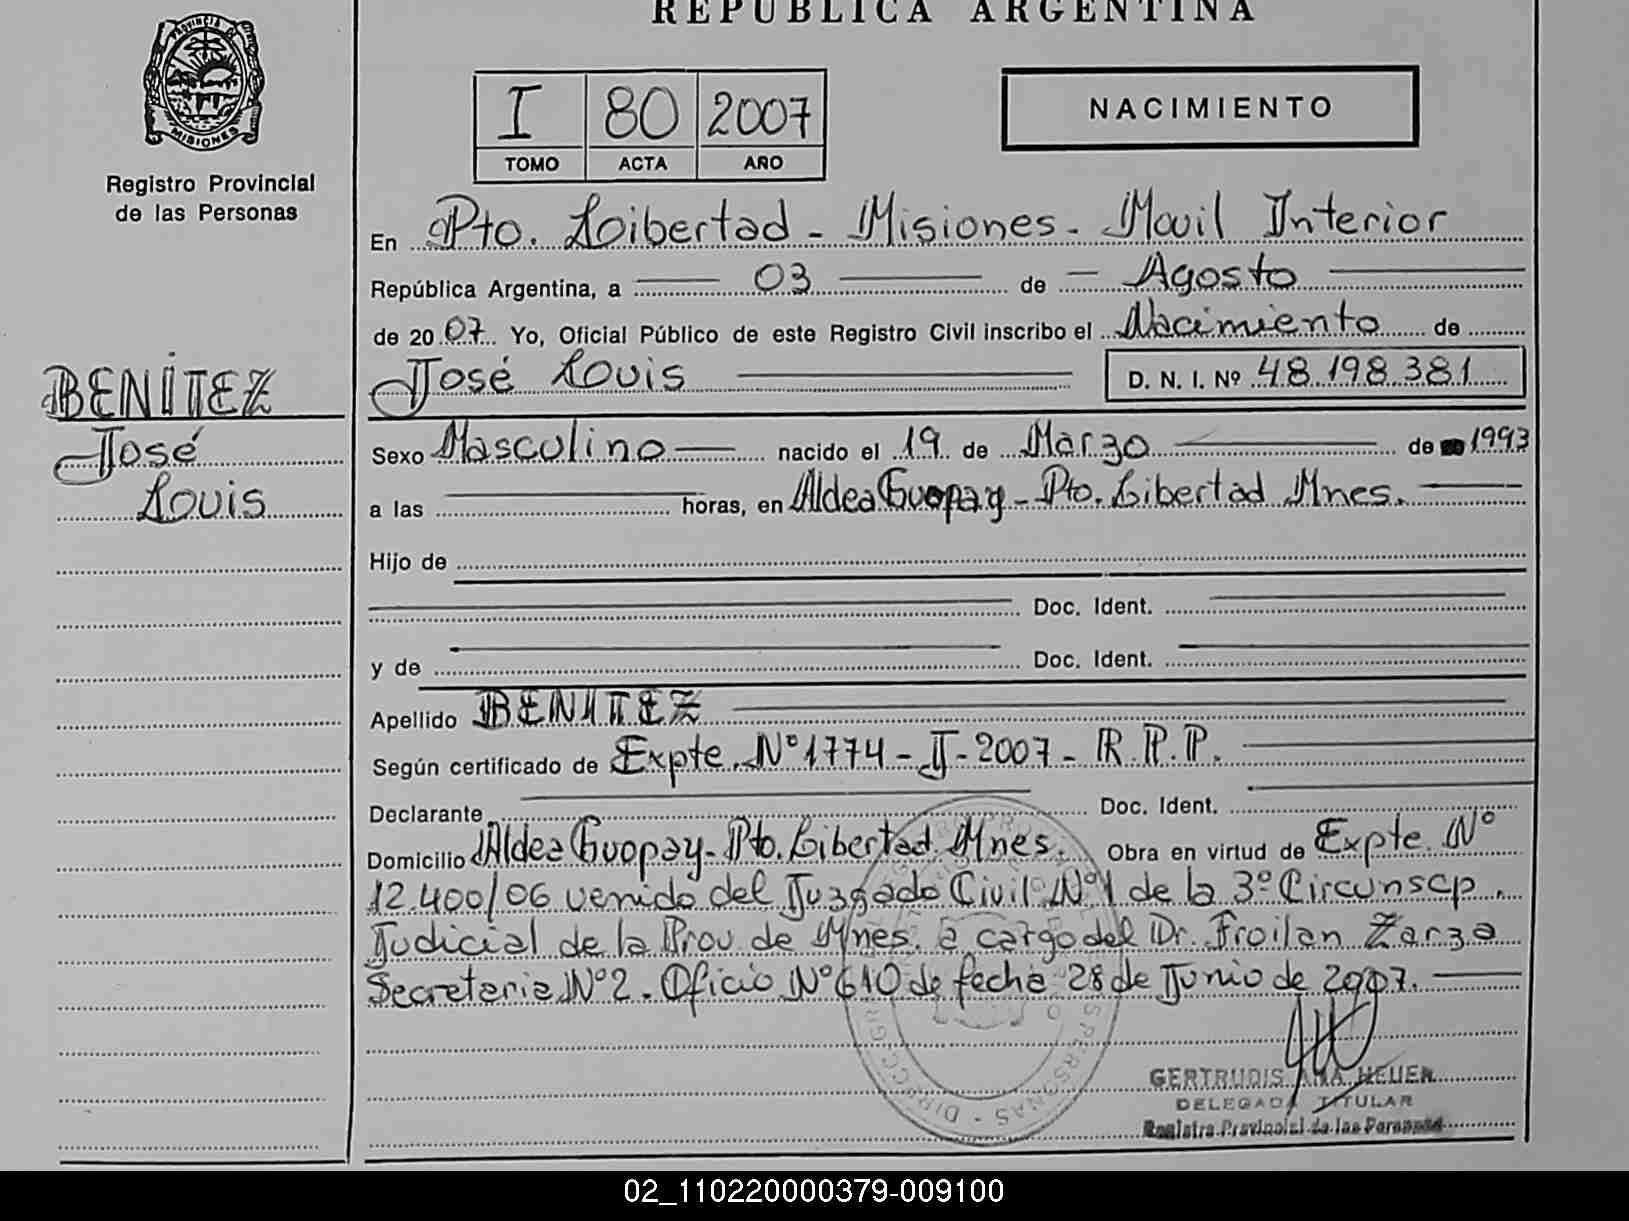 REPUBLICA ARGENTINA
MISIONES
Registro Provincial
de las Personas
I 80 2007
TOMO ACTA AÑO
NACIMIENTO
En Pto. Libertad - Misiones - Movil Interior
República Argentina, a 03 de Agosto
de 2007 Yo, Oficial Público de este Registro Civil inscribo el Nacimiento de
BENÍTEZ
José
Louis
José Louis D. N. I. Nº 48.198.381
Sexo Masculino nacido el 19 de Marzo de 1993
a las horas, en Aldea Guapay - Pto. Libertad Mnes.
Hijo de
Doc. Ident.
y de Doc. Ident.
Apellido BENITEZ
Según certificado de Expte. Nº 1774 - J - 2007 - R.P.P.
Declarante Doc. Ident.
Domicilio Aldea Guapay - Pto. Libertad Mnes. Obra en virtud de Expte. Nº
12.400/06 venido del Juzgado Civil Nº1 de la 3º Circunscp.
Judicial de la Prov. de Mnes. a cargo del Dr. Froilan Zarza
Secretaria Nº2. Oficio Nº 610 de fecha 28 de Junio de 2007.
GERTRUDIS ANA
DELEGADA TITULAR
Registro Provincial de las Personas
02_110220000379-009100